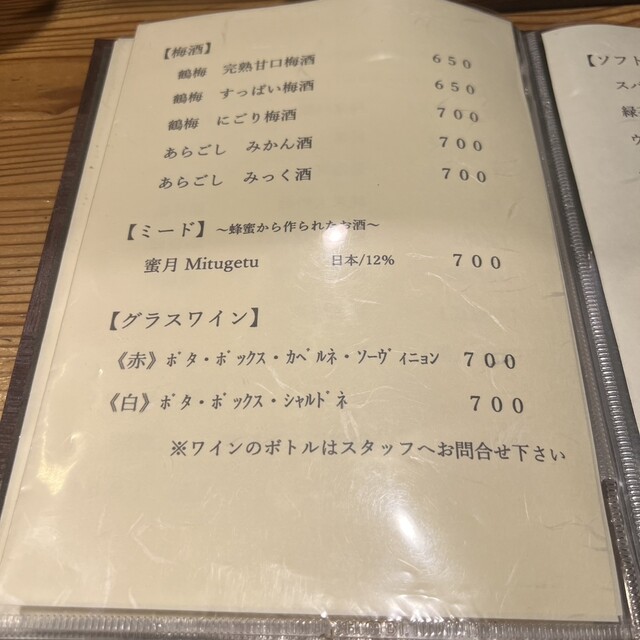 【梅酒】
鶴梅 完熟甘口梅酒 650
鶴梅 すっぱい梅酒 650
鶴梅 にごり梅酒 700
あらごし みかん酒 700
あらごし みっく酒 700
【ミード】～蜂蜜から作られたお酒～
蜜月 Mitugetu 日本/12% 700
【グラスワイン】
《赤》ﾎﾞﾀ・ﾎﾞｯｸｽ・ｶﾍﾞﾙﾈ・ｿｰｳﾞｨﾆｮﾝ 700
《白》ﾎﾞﾀ・ﾎﾞｯｸｽ・ｼｬﾙﾄﾞﾈ 700
※ワインのボトルはスタッフへお問合せ下さい
【ソフト
スパ
緑
ウ